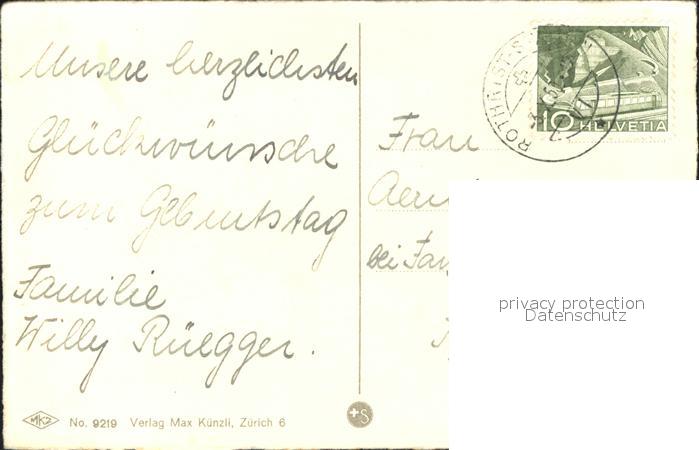 Unsere herzlichsten
Glückwünsche
zum Geburtstag
Familie
Willy Rüegger.
MKZ No. 9219 Verlag Max Künzli, Zürich 6
+S
ROTHRIST
10 HELVETIA
Frau
bei Fam
privacy protection
Datenschutz